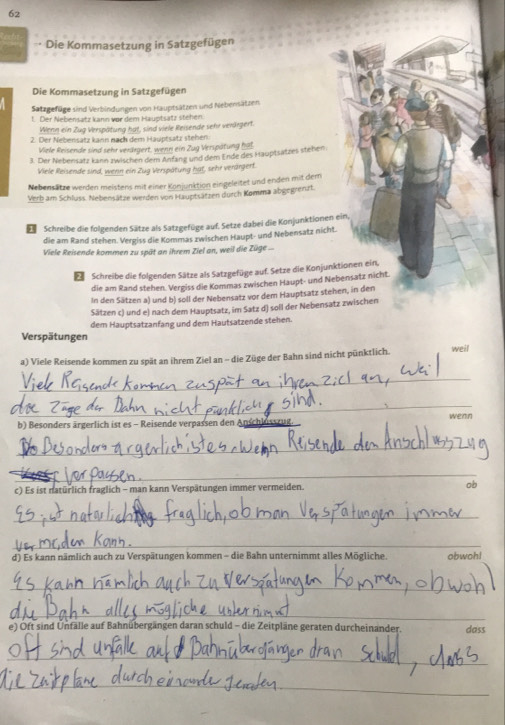 62
Die Kommasetzung in Satzgefügen
Die Kommasetzung in Satzgefügen
Satzgefüge sind Verbindungen von Hauptsätzen und Nebensätzen.
1. Der Nebensatz kann vor dem Hauptsatz stehen:
Wenn ein Zug Verspätung hat, sind viele Reisende sehr verärgert.
2. Der Nebensatz kann nach dem Hauptsatz stehen:
Viele Reisende sind sehr verärgert, wenn ein Zug Verspätung hat.
3. Der Nebensatz kann zwischen dem Anfang und dem Ende des Hauptsatzes stehen:
Viele Reisende sind, wenn ein Zug Verspätung hat, sehr verärgert.
Nebensätze werden meistens mit einer Konjunktion eingeleitet und enden mit dem
Verb am Schluss. Nebensätze werden von Hauptsätzen durch Komma abgegrenzt.
1 Schreibe die folgenden Sätze als Satzgefüge auf. Setze dabei die Konjunktionen ein,
die am Rand stehen. Vergiss die Kommas zwischen Haupt- und Nebensatz nicht.
Viele Reisende kommen zu spät an ihrem Ziel an, weil die Züge ...
2 Schreibe die folgenden Sätze als Satzgefüge auf. Setze die Konjunktionen ein,
die am Rand stehen. Vergiss die Kommas zwischen Haupt- und Nebensatz nicht.
In den Sätzen a) und b) soll der Nebensatz vor dem Hauptsatz stehen, in den
Sätzen c) und e) nach dem Hauptsatz, im Satz d) soll der Nebensatz zwischen
dem Hauptsatzanfang und dem Hautsatzende stehen.
Verspätungen
a) Viele Reisende kommen zu spät an ihrem Ziel an – die Züge der Bahn sind nicht pünktlich. weil
Viele Reisende kommen zuspät an ihrem Ziel an, weil
die Züge der Bahn nicht pünktlich sind.
b) Besonders ärgerlich ist es – Reisende verpassen den Anschlusszug. wenn
Besonders ärgerlich ist es, wenn Reisende den Anschlusszug
verpassen.
c) Es ist natürlich fraglich – man kann Verspätungen immer vermeiden. ob
Es ist natürlich fraglich, ob man Verspätungen immer
vermeiden kann.
d) Es kann nämlich auch zu Verspätungen kommen – die Bahn unternimmt alles Mögliche. obwohl
Es kann nämlich auch zu Verspätungen kommen, obwohl
die Bahn alles mögliche unternimmt
e) Oft sind Unfälle auf Bahnübergängen daran schuld – die Zeitpläne geraten durcheinander. dass
Oft sind Unfälle auf Bahnübergängen dran schuld, dass
die Zeitpläne durcheinander geraten.